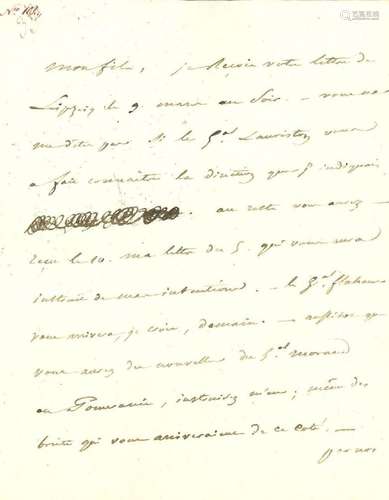 mon fils, je Reçois votre lettre de
Lipzig le 9. mars au soir. — vous ne
me dites pas si le G.al Lauriston vous
a fait connaitre la direction que j' indiquais
. au reste vous aurez
reçu le 10. ma lettre du 5. qui vous aura
instruit de mes intentions. — le G.al flahaut
vous arrivera, je crois, demain. — aussitot que
vous aurez des nouvelles du G.al morand
en Pomeranie, instruisez m'en; même des
bruits qui vous arriveraient de ce coté. —